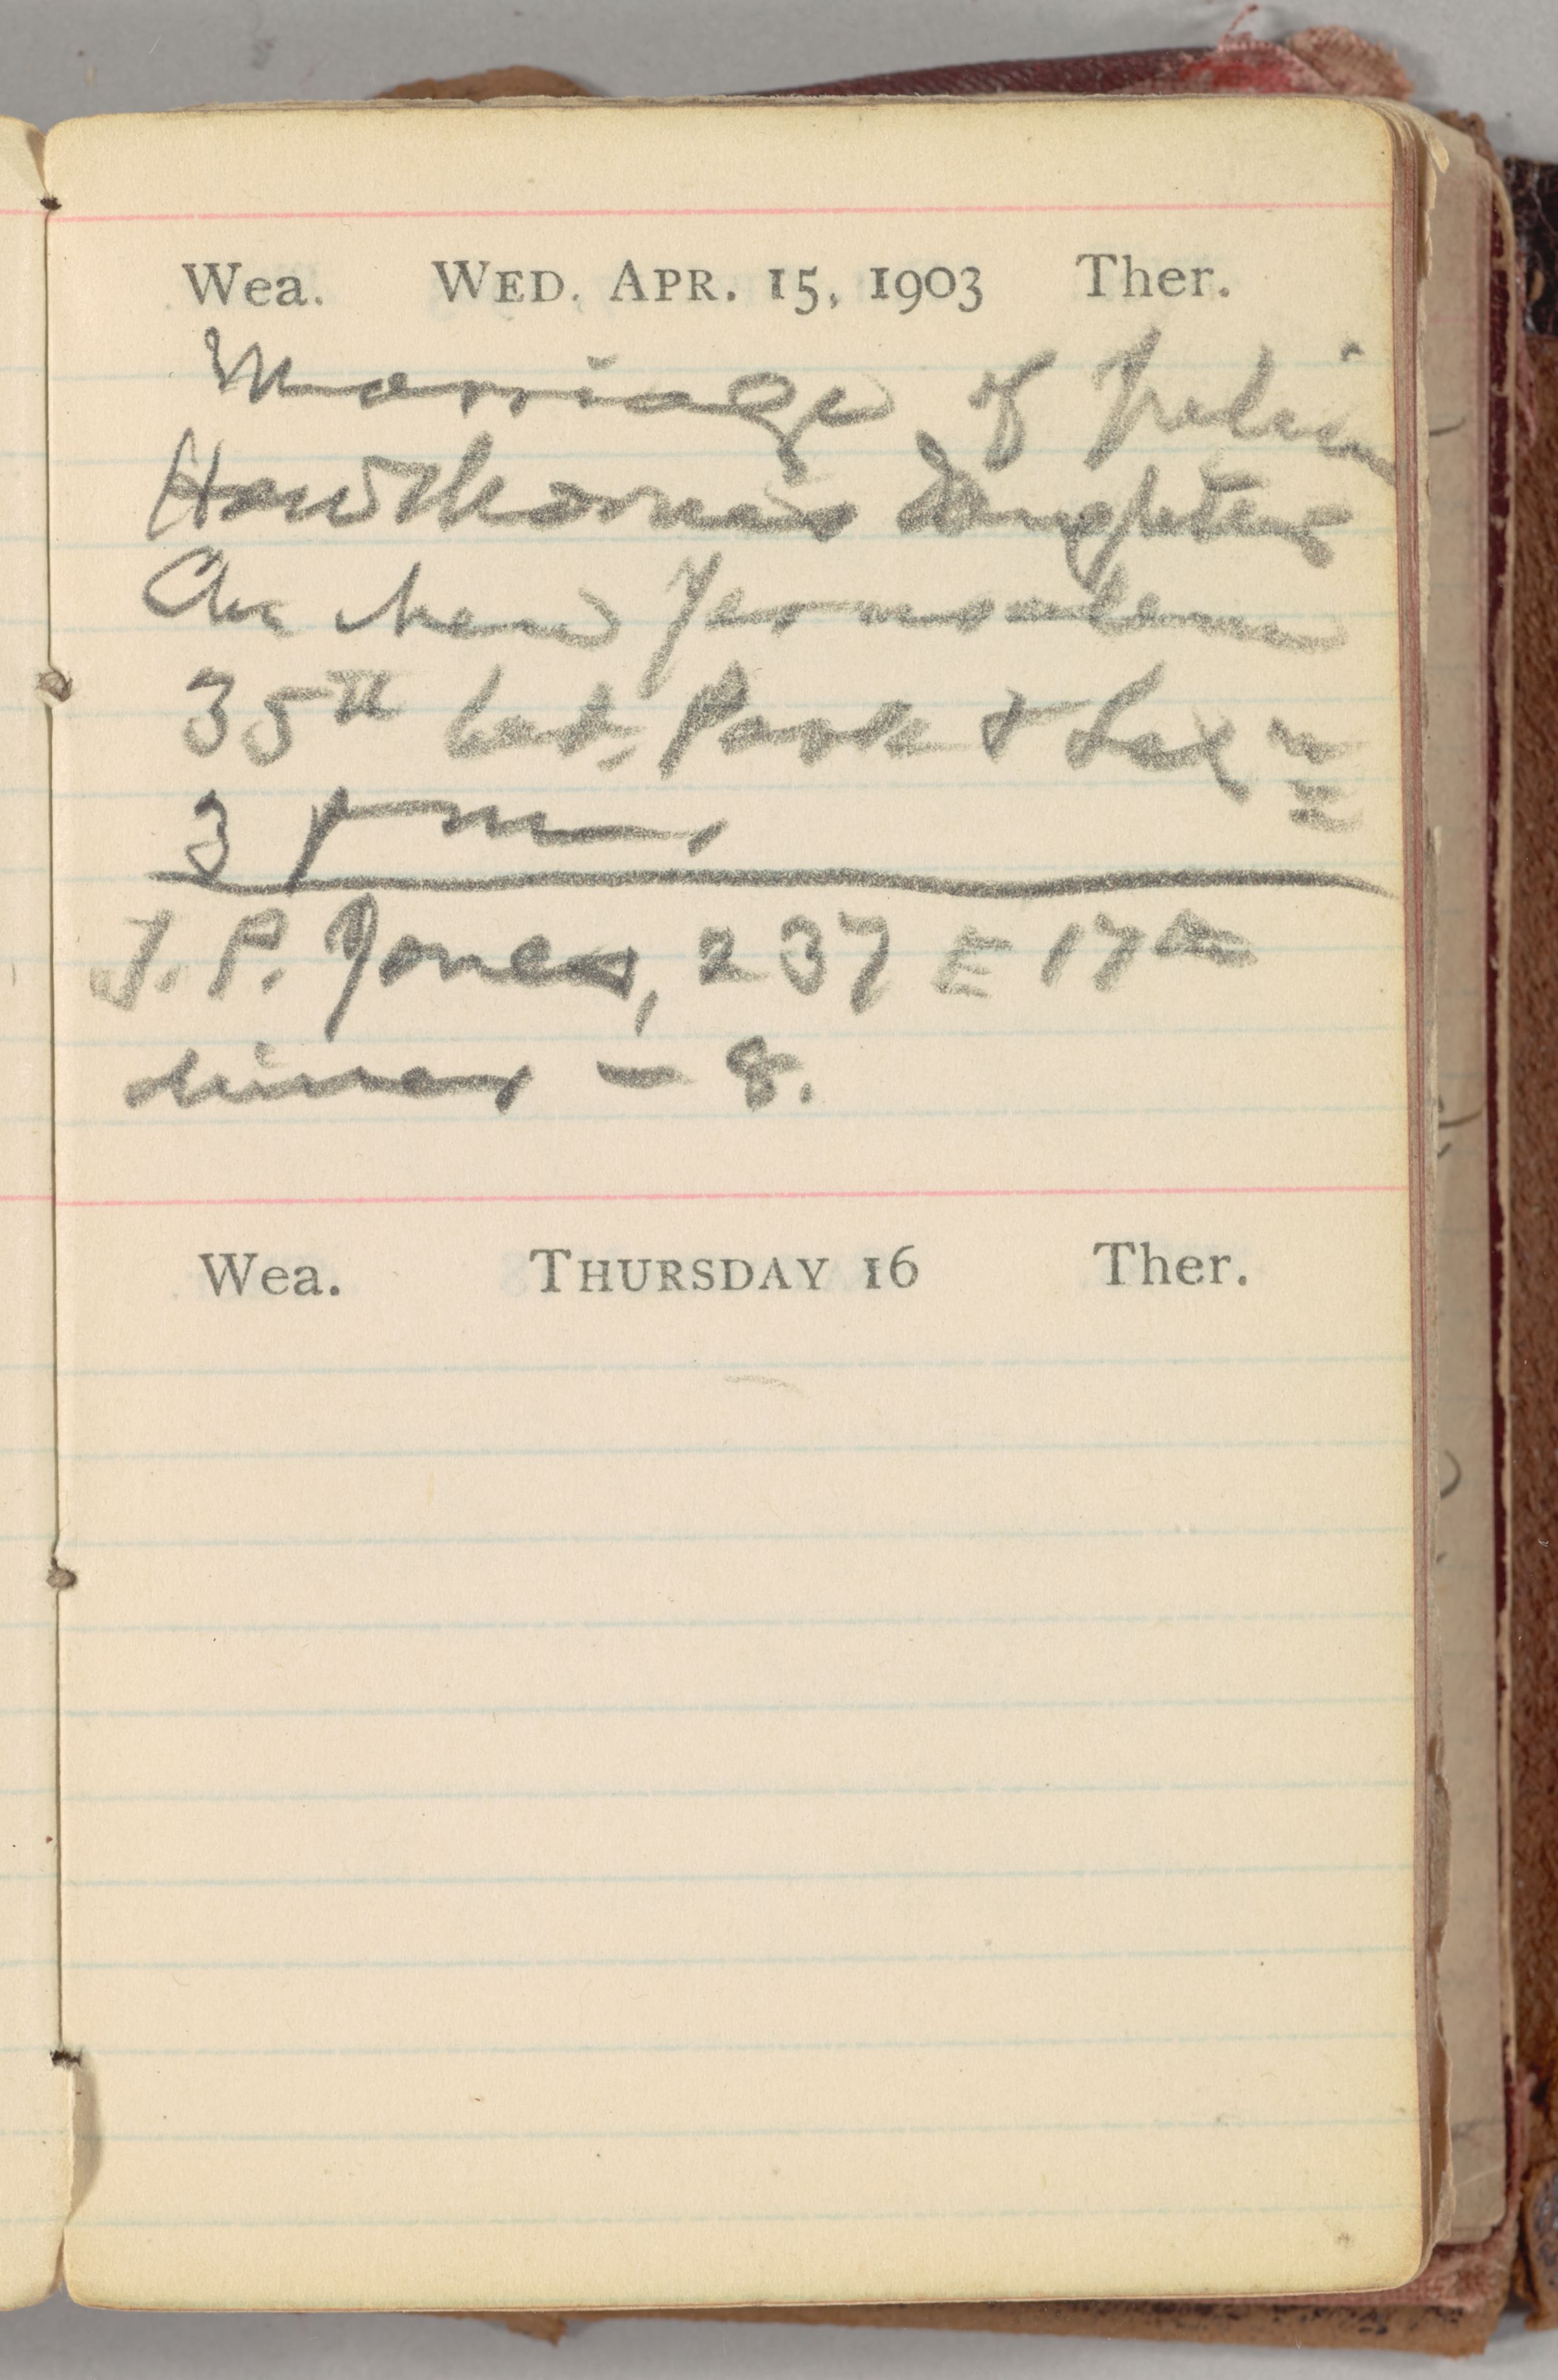 Wea. WED. APR. 15, 1903 Ther.
Marriage of Julian
Hawthorne's Daughter
Ch. New Jerusalem
35th bet. Park & Lex'n
3 p m.
J. P. Jones, 237 E 17th
dinner - 8.
Wea. THURSDAY 16 Ther.